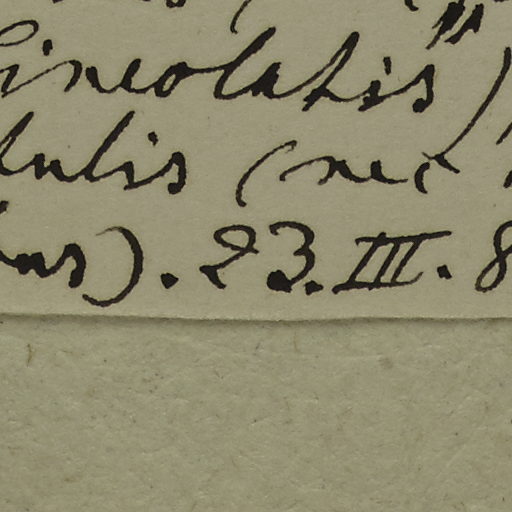 lineolatis")
tulis (nec
bus). 23. III. 8